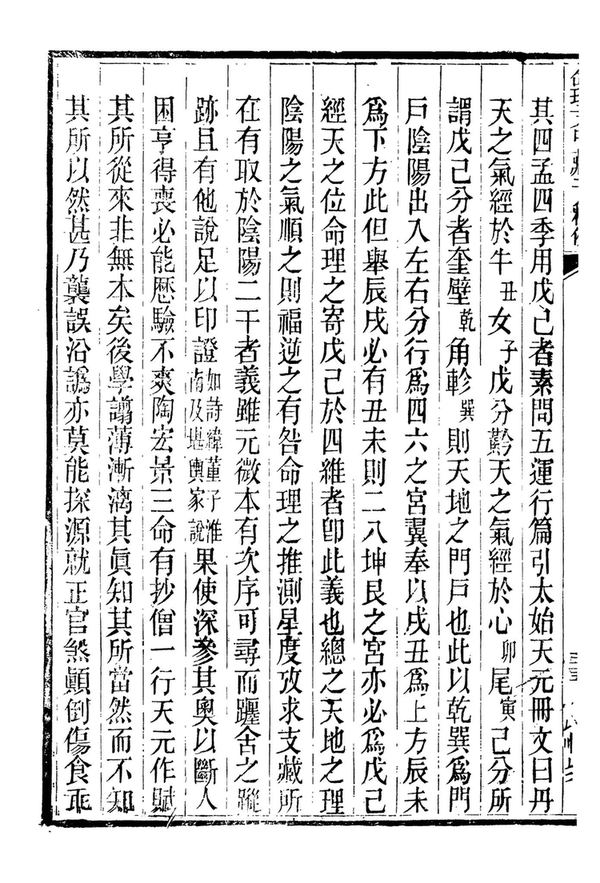 其四孟四季用戊己者素問五運行篇引太始天元冊文曰丹
天之氣經於牛丑女子戊分黅天之氣經於心卯尾寅己分所
謂戊己分者奎壁乾角軫巽則天地之門戶也此以乾巽爲門
戶陰陽出入左右分行爲四六之宮翼奉以戌丑爲上方辰未
爲下方此但舉辰戌必有丑未則二八坤艮之宮亦必爲戊己
經天之位命理之寄戊己於四維者卽此義也總之天地之理
陰陽之氣順之則福逆之有咎命理之推測星度攷求支藏所
在有取於陰陽二干者義雖元微本有次序可尋而躔舍之蹤
跡且有他說足以印證如詩緯董子淮南及堪輿家說果使深參其奧以斷人
困亨得喪必能歷驗不爽陶宏景三命有抄僧一行天元作賦
其所從來非無本矣後學譾薄漸漓其眞知其所當然而不知
其所以然甚乃襲誤沿譌亦莫能探源就正官煞顛倒傷食乖